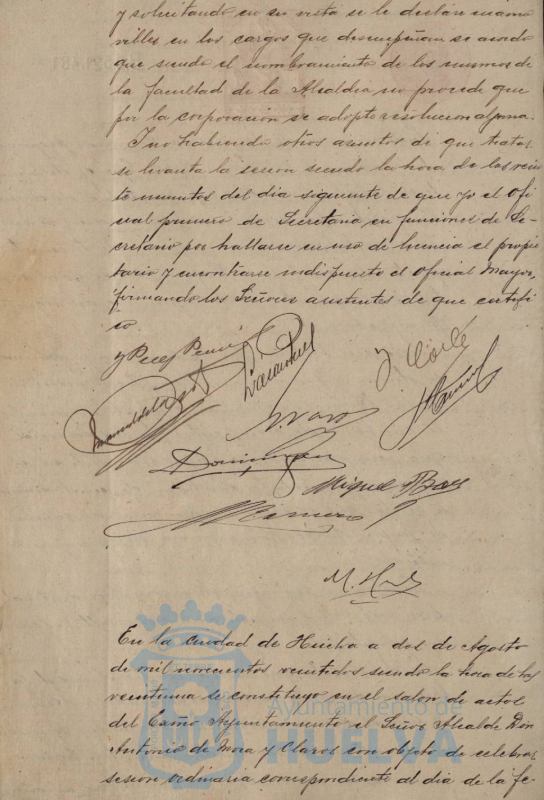 y solicitando en su vista se le declan inamo
vibles en los cargos que desempeñan se acordo
que siendo el nombramiento de los mismos de
la facultad de la Alcaldia no procede que
por la corporacion se adopte resolucion alguna.
Y no habiendo otros asuntos de que tratar
se levanta la sesion siendo la hora de las vein
te minutos del dia siguiente de que yo el ofi
cial primero de Secretaria en funciones de Se
cretario por hallarse en uso de licencia el propie
tario y encontrarse indispuesto el oficial Mayor,
firmando los Señores asistentes de que certifi
co
y Perez
J.
Dominguez
Miguel
M.
En la ciudad de Huelva a dos de Agosto
de mil novecientos veintidos siendo la hora de las
veintiuna se constituyo en el salon de actos
del Excmo Ayuntamiento el Señor Alcalde Don
Antonio de Mora y Claros con objeto de celebrar
sesion ordinaria correspondiente al dia de la fe-
Ayuntamiento de
HUELVA